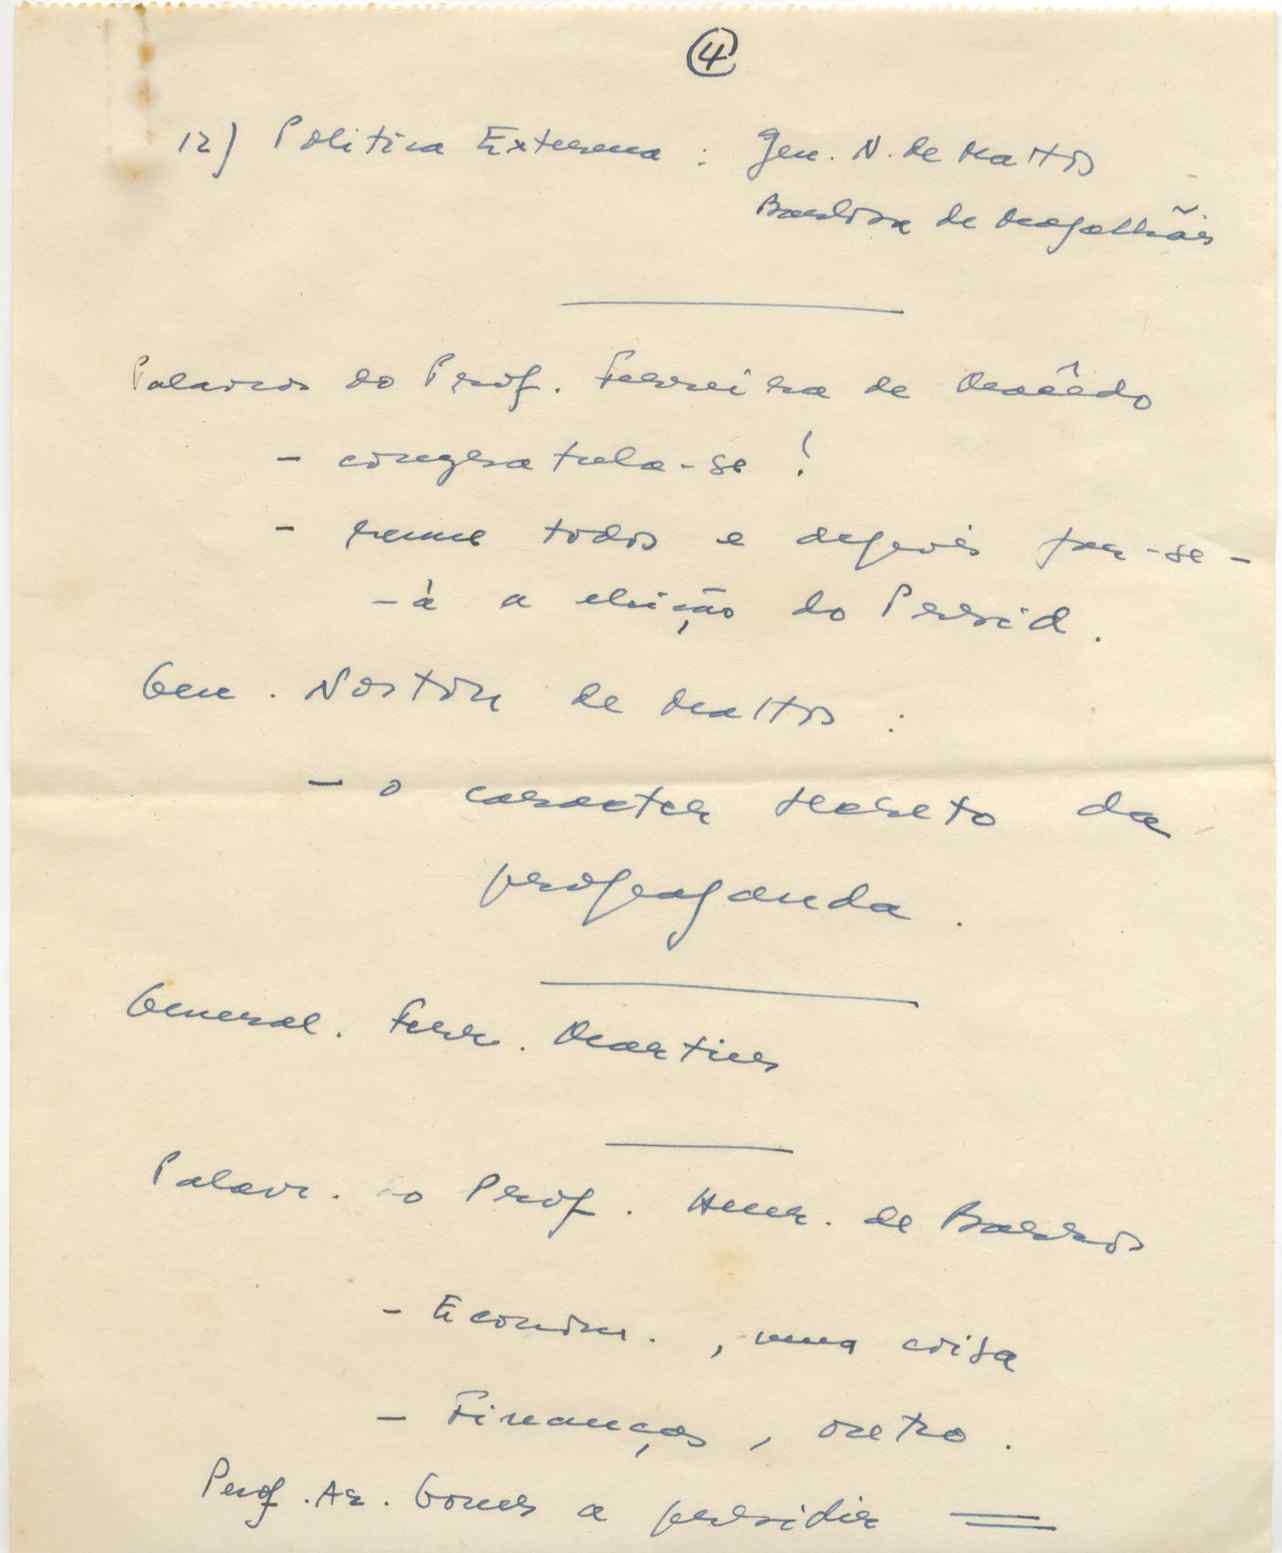 4
12) Politica Externa : Gen. N. de Mattos
Barbosa de Magalhães
Palavras do Prof. Ferreira de Macêdo
- congratula-se !
- reune todos e depois far-se-
-à a eleição do Presid.
Gen. Norton de Mattos :
- o caracter secreto da
propaganda.
General. Ferr. Martins
Palavr. do Prof. Henr. de Barros
- Econom. , uma coisa
- Finanças, outro.
Prof. Az. Gomes a presidir